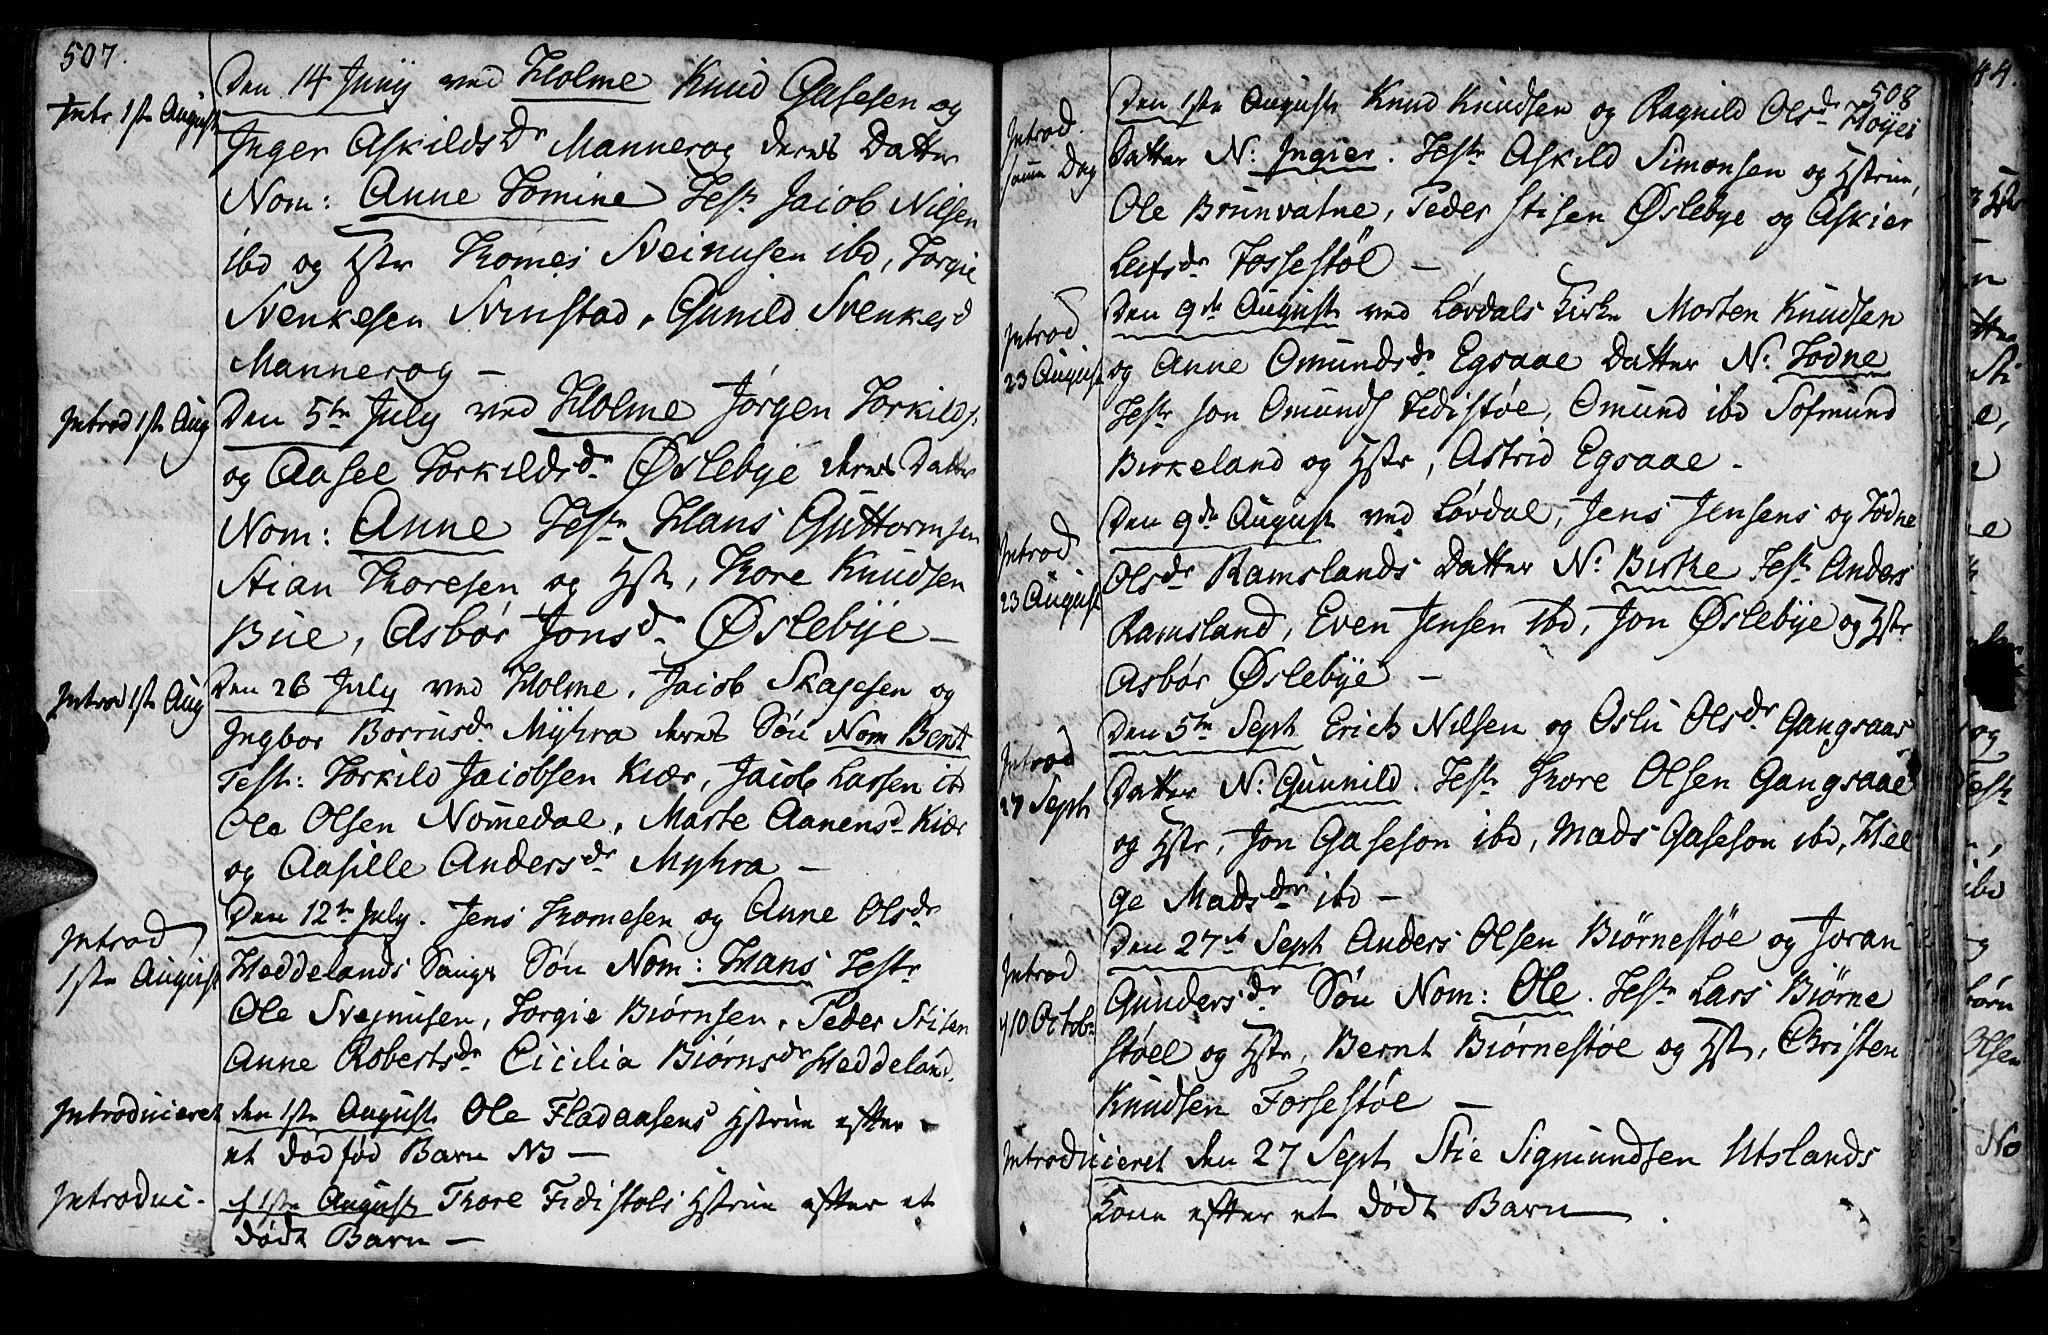 507.
Intr 1ste August
Den 14 Junij ved Holme Knud Gasesen og
Inger Askildsdr Mannerog deres Datter
Nom: Anne Tomine Testr Jacob Nilsen
ibd og Hstr Thomes Sveinusen ibd, Torgie
Svenkesen Svinstad, Gunild Svenkesd
Mannerog —
Introd 1ste Aug
Den 5te July ved Holme Jørgen Torkilds:
og Aasel Torkildsdr Øslebye deres Datter
Nom: Anne Testr Hans Guttormsen
Stian Thoresen og Hstr, Thore Knudsen
Bue, Asbør Jonsdr Øslebye —
Introd 1ste Aug
Den 26 July ved Holme, Jacob Skajesen og
Ingbor Borrusdr Myhra deres Søn Nom Bent
Test: Torkild Jacobsen Kiær, Jacob Lassen ibd
Ole Olsen Nomedal, Marte Aanensd Kiær
og Aasille Andersdr Myhra —
Introd
1ste August
Den 12te July. Jens Thomesen og Anne Olsdr
Heddelands Sangs Søn Nom: Hans Testr
Ole Svejnusen, Torgie Biørnsen, Peder Stisen
Anne Robertsdr Cicilia Biørnsdr Heddeland.
Introduceret den 1ste August Ole Fladaasens Hstrue efter
et dødfød Barn NB —
Introduci- d 1ste August Thore Fidistøls Hstrue efter et
dødt Barn —
508
Introd.
samme Dag
Den 1ste August Knud Knudsen og Ragnild Olsdr Høyei
Datter N: Ingier. Testr Askild Simonsen og Hstrue,
Ole Brunvatne, Peder Stisen Øslebye og Askier
Leifsdr Fossestøl —
Introd
23 August
Den 9de August ved Løvdals Kirke Morten Knudsen
og Anne Omundsdr Egsaae Datter N: Todne
Testr Jon Omunds Fidistøe, Omund ibd Sofmund
Birkeland og Hstr, Astrid Egsaae —
Introd
23 August
Den 9de August ved Løvdal, Jens Jensens og Todne
Olsdr Ramslands Datter N: Birthe Testr Anders
Ramsland, Even Jensen ibd, Jon Øslebye og Hstr
Asbør Øslebye —
Introd
27 Sept
Den 5te Sept Erich Nilsen og Oslu Olsdr Gangsaas
Datter N: Gunnild. Testr Thore Olsen Gangsaae
og Hstr, Jon Gaseson ibd, Mads Gaseson ibd, Hel
ge Madsdr ibd —
Introd
10 Octobr
Den 27de Sept Anders Olsen Biørnestøe og Joran
Gundersdr Søn Nom: Ole. Testr Lars Biørne
støel og Hstr, Bernt Biørnestøe og Hstr, Christen
Knudsen Fossestøe —
Introduceret den 27 Sept Stie Sigmundsen Utslands
Kone efter et dødt Barn —